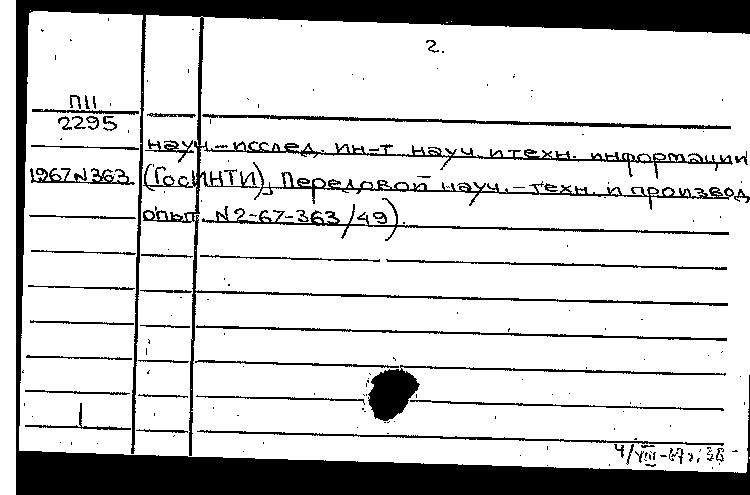 2.
ПII
2295
науч.-исслед. ин-т науч. и техн. информации
1967 N 363 (ГосИНТИ), Передовой науч.-техн. и производ.
опыт. N2-67-363/49)